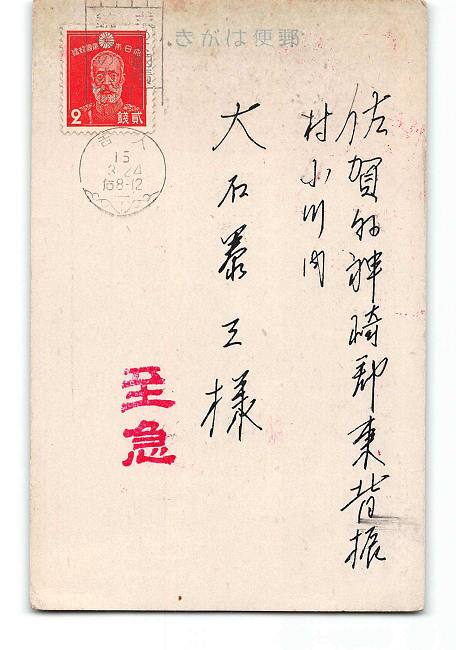 きかは便郵
大日本帝國郵便
2 錢貳
15
3.24
后8-12
佐賀縣神崎郡東背振
村小川内
大石 様
至急